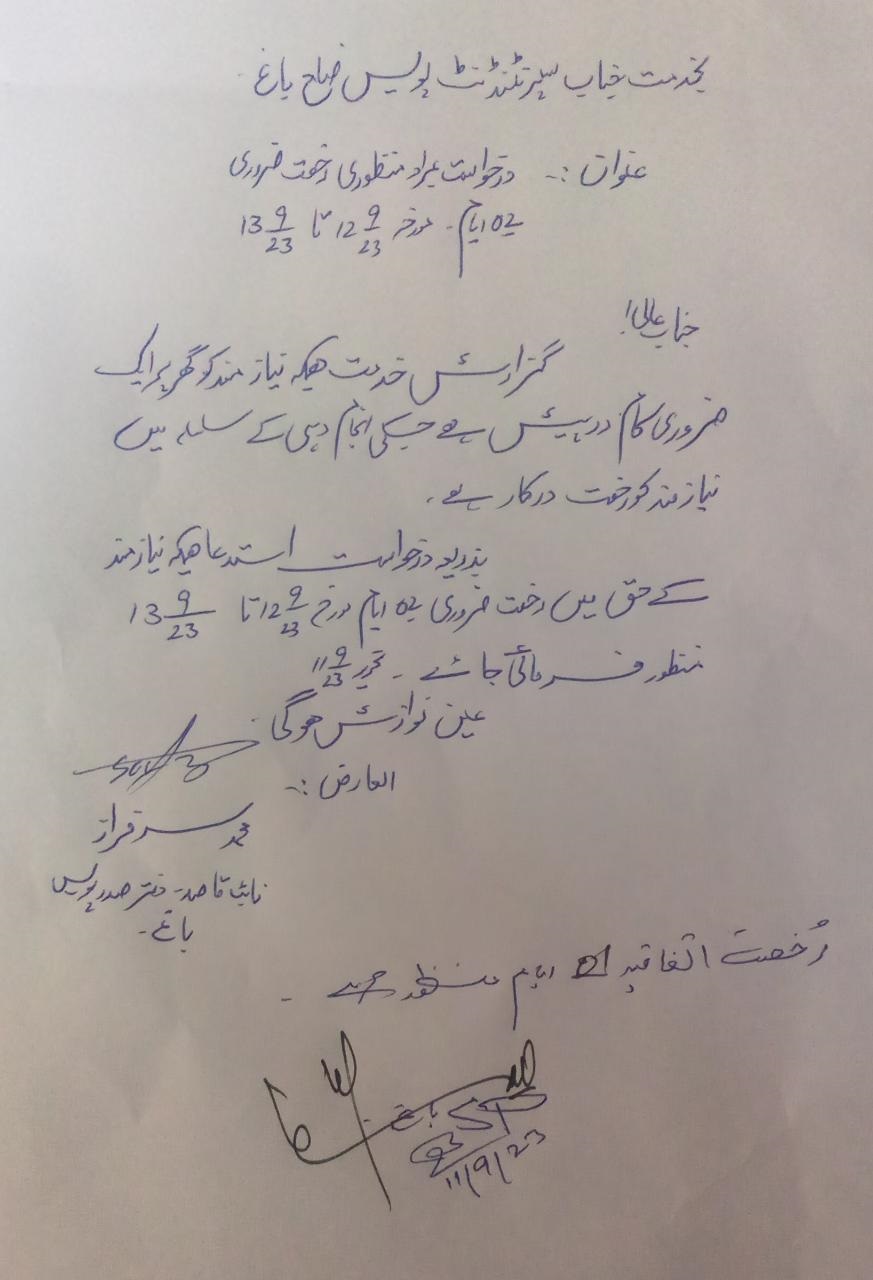 بخدمت جناب سپرنٹنڈنٹ پولیس ضلع باغ۔
عنوان :۔ درخواست بمراد منظوری رخصت ضروری
02 ایام۔ مورخہ 12 9/23 تا 13 9/23
جناب عالی!
گزارش خدمت ھیکہ نیاز مند کو گھر پر ایک
ضروری کام درپیش ہے جسکی انجام دہی کے سلسلہ میں
نیاز مند کو رخصت درکار ہے۔
بذریعہ درخواست استدعا ھیکہ نیاز مند
کے حق میں رخصت ضروری 02 ایام مورخہ 12 9/23 تا 13 9/23
منظور فرمائی جائے ۔ تحریر 11 9/23
عین نوازش ھوگی
العارض :۔
محمد سرفراز
نائب قاصد۔ دفتر صدر پولیس
باغ۔
رُخصت اتفاقیہ ایام منظور ہے ۔
باغ
11/9/23